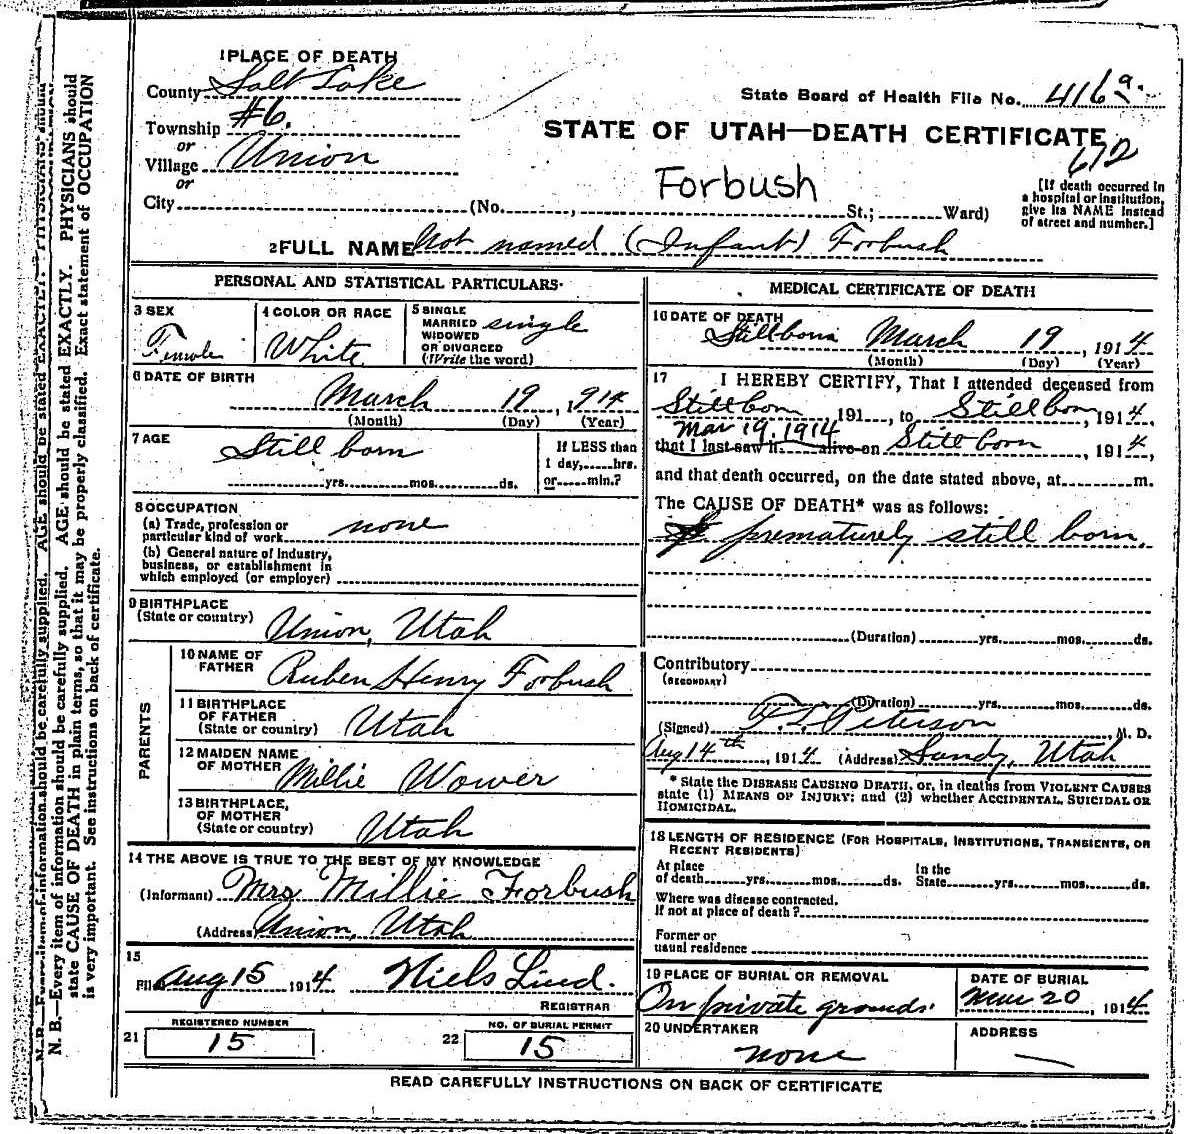 1 PLACE OF DEATH
County Salt Lake
State Board of Health File No. 416 a.
Township #6.
or
STATE OF UTAH—DEATH CERTIFICATE
672
Village Union
or
Forbush
City (No. , St.; Ward)
[If death occurred in
a hospital or institution,
give its NAME instead
of street and number.]
2 FULL NAME Not named (Infant) Forbush
PERSONAL AND STATISTICAL PARTICULARS
3 SEX
Female
4 COLOR OR RACE
White
5 SINGLE
MARRIED
WIDOWED
OR DIVORCED
(Write the word)
single
6 DATE OF BIRTH
March 19, 1914
(Month) (Day) (Year)
7 AGE
Still born
yrs. mos. ds.
If LESS than
1 day, hrs.
or min.?
8 OCCUPATION
(a) Trade, profession or
particular kind of work none
(b) General nature of Industry,
business, or establishment in
which employed (or employer)
9 BIRTHPLACE
(State or country) Union, Utah
PARENTS
10 NAME OF
FATHER Ruben Henry Forbush
11 BIRTHPLACE
OF FATHER
(State or country) Utah
12 MAIDEN NAME
OF MOTHER Millie Wower
13 BIRTHPLACE,
OF MOTHER
(State or country) Utah
14 THE ABOVE IS TRUE TO THE BEST OF MY KNOWLEDGE
(Informant) Mrs Millie Forbush
(Address) Union, Utah
15
Filed Aug 15 1914 Niels Lind.
REGISTRAR
REGISTERED NUMBER
21 15
NO. OF BURIAL PERMIT
22 15
MEDICAL CERTIFICATE OF DEATH
16 DATE OF DEATH
Stillborn March 19, 1914
(Month) (Day) (Year)
17 I HEREBY CERTIFY, That I attended deceased from
Stillborn, 191 , to Stillborn, 1914,
Mar 19, 1914
that I last saw h alive on Still born, 1914,
and that death occurred, on the date stated above, at m.
The CAUSE OF DEATH* was as follows:
prematurely still born.
(Duration) yrs. mos. ds.
Contributory
(SECONDARY)
(Duration) yrs. mos. ds.
(Signed) Peterson M. D.
Aug 14th, 1914 (Address) Sandy, Utah
* State the DISEASE CAUSING DEATH, or, in deaths from VIOLENT CAUSES
state (1) MEANS OF INJURY; and (2) whether ACCIDENTAL, SUICIDAL OR
HOMICIDAL.
18 LENGTH OF RESIDENCE (FOR HOSPITALS, INSTITUTIONS, TRANSIENTS, OR
RECENT RESIDENTS)
At place In the
of death yrs. mos. ds. State yrs. mos. ds.
Where was disease contracted,
if not at place of death?
Former or
usual residence
19 PLACE OF BURIAL OR REMOVAL
On private grounds.
DATE OF BURIAL
Mar 20, 1914
20 UNDERTAKER
none
ADDRESS
READ CAREFULLY INSTRUCTIONS ON BACK OF CERTIFICATE
N. B.—Every item of information should be carefully supplied. AGE should be stated EXACTLY. PHYSICIANS should
state CAUSE OF DEATH in plain terms, so that it may be properly classified. Exact statement of OCCUPATION
is very important. See instructions on back of certificate.